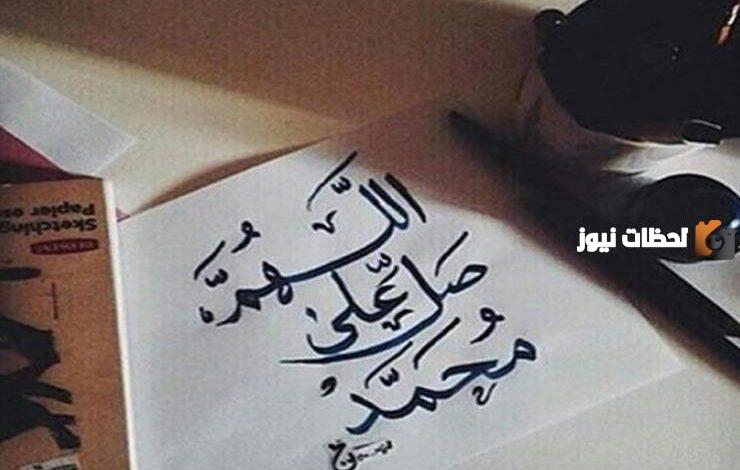 اللّهُمَّ
صَلِّ عَلى
مُحَمَّد
لحظات نيوز
Sketching
Papier